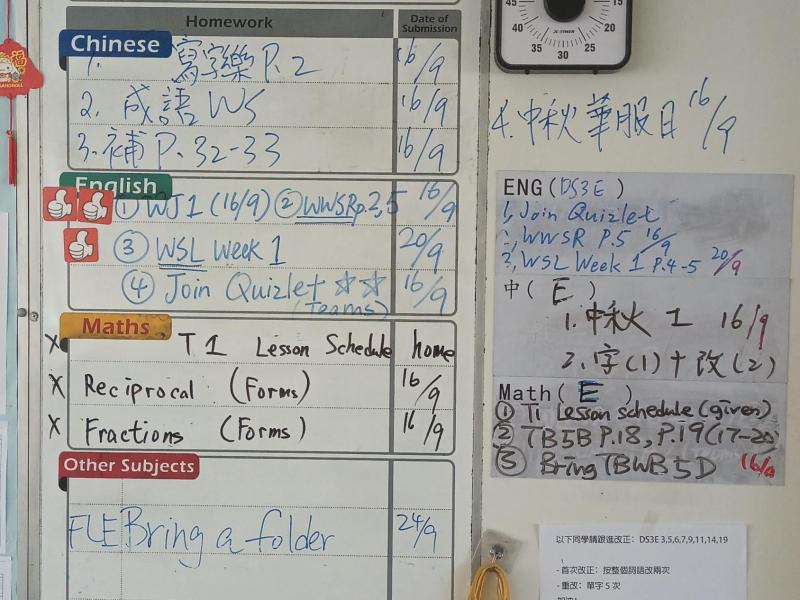 Homework
Date of Submission
Chinese
1. 寫字樂 P.2 16/9
2. 成語 WS 16/9
3. 補 P.32-33 16/9
English
① WJ1 (16/9) ② WWSR p.2,5 16/9
③ WSL Week 1 20/9
④ Join Quizlet ☆☆ 16/9
(Teams)
Maths
X T1 Lesson Schedule home
X Reciprocal (Forms) 16/9
X Fractions (Forms) 16/9
Other Subjects
FLE Bring a folder 24/9
45
40
35
30
25
20
15
4. 中秋華服日 16/9
ENG (DS3E)
1, Join Quizlet
2, WWSR P.5 16/9
3, WSL Week 1 P.4-5 20/9
中 (E)
1. 中秋 1 16/9
2. 字(1)十改(2)
Math (E)
① T1 Lesson schedule (given)
② TB5B P.18, P.19 (17-20)
③ Bring TBWB5D 16/9
以下同學請跟進改正: DS3E 3,5,6,7,9,11,14,19
- 首次改正: 按整個詞語改兩次
- 重改: 單字 5 次